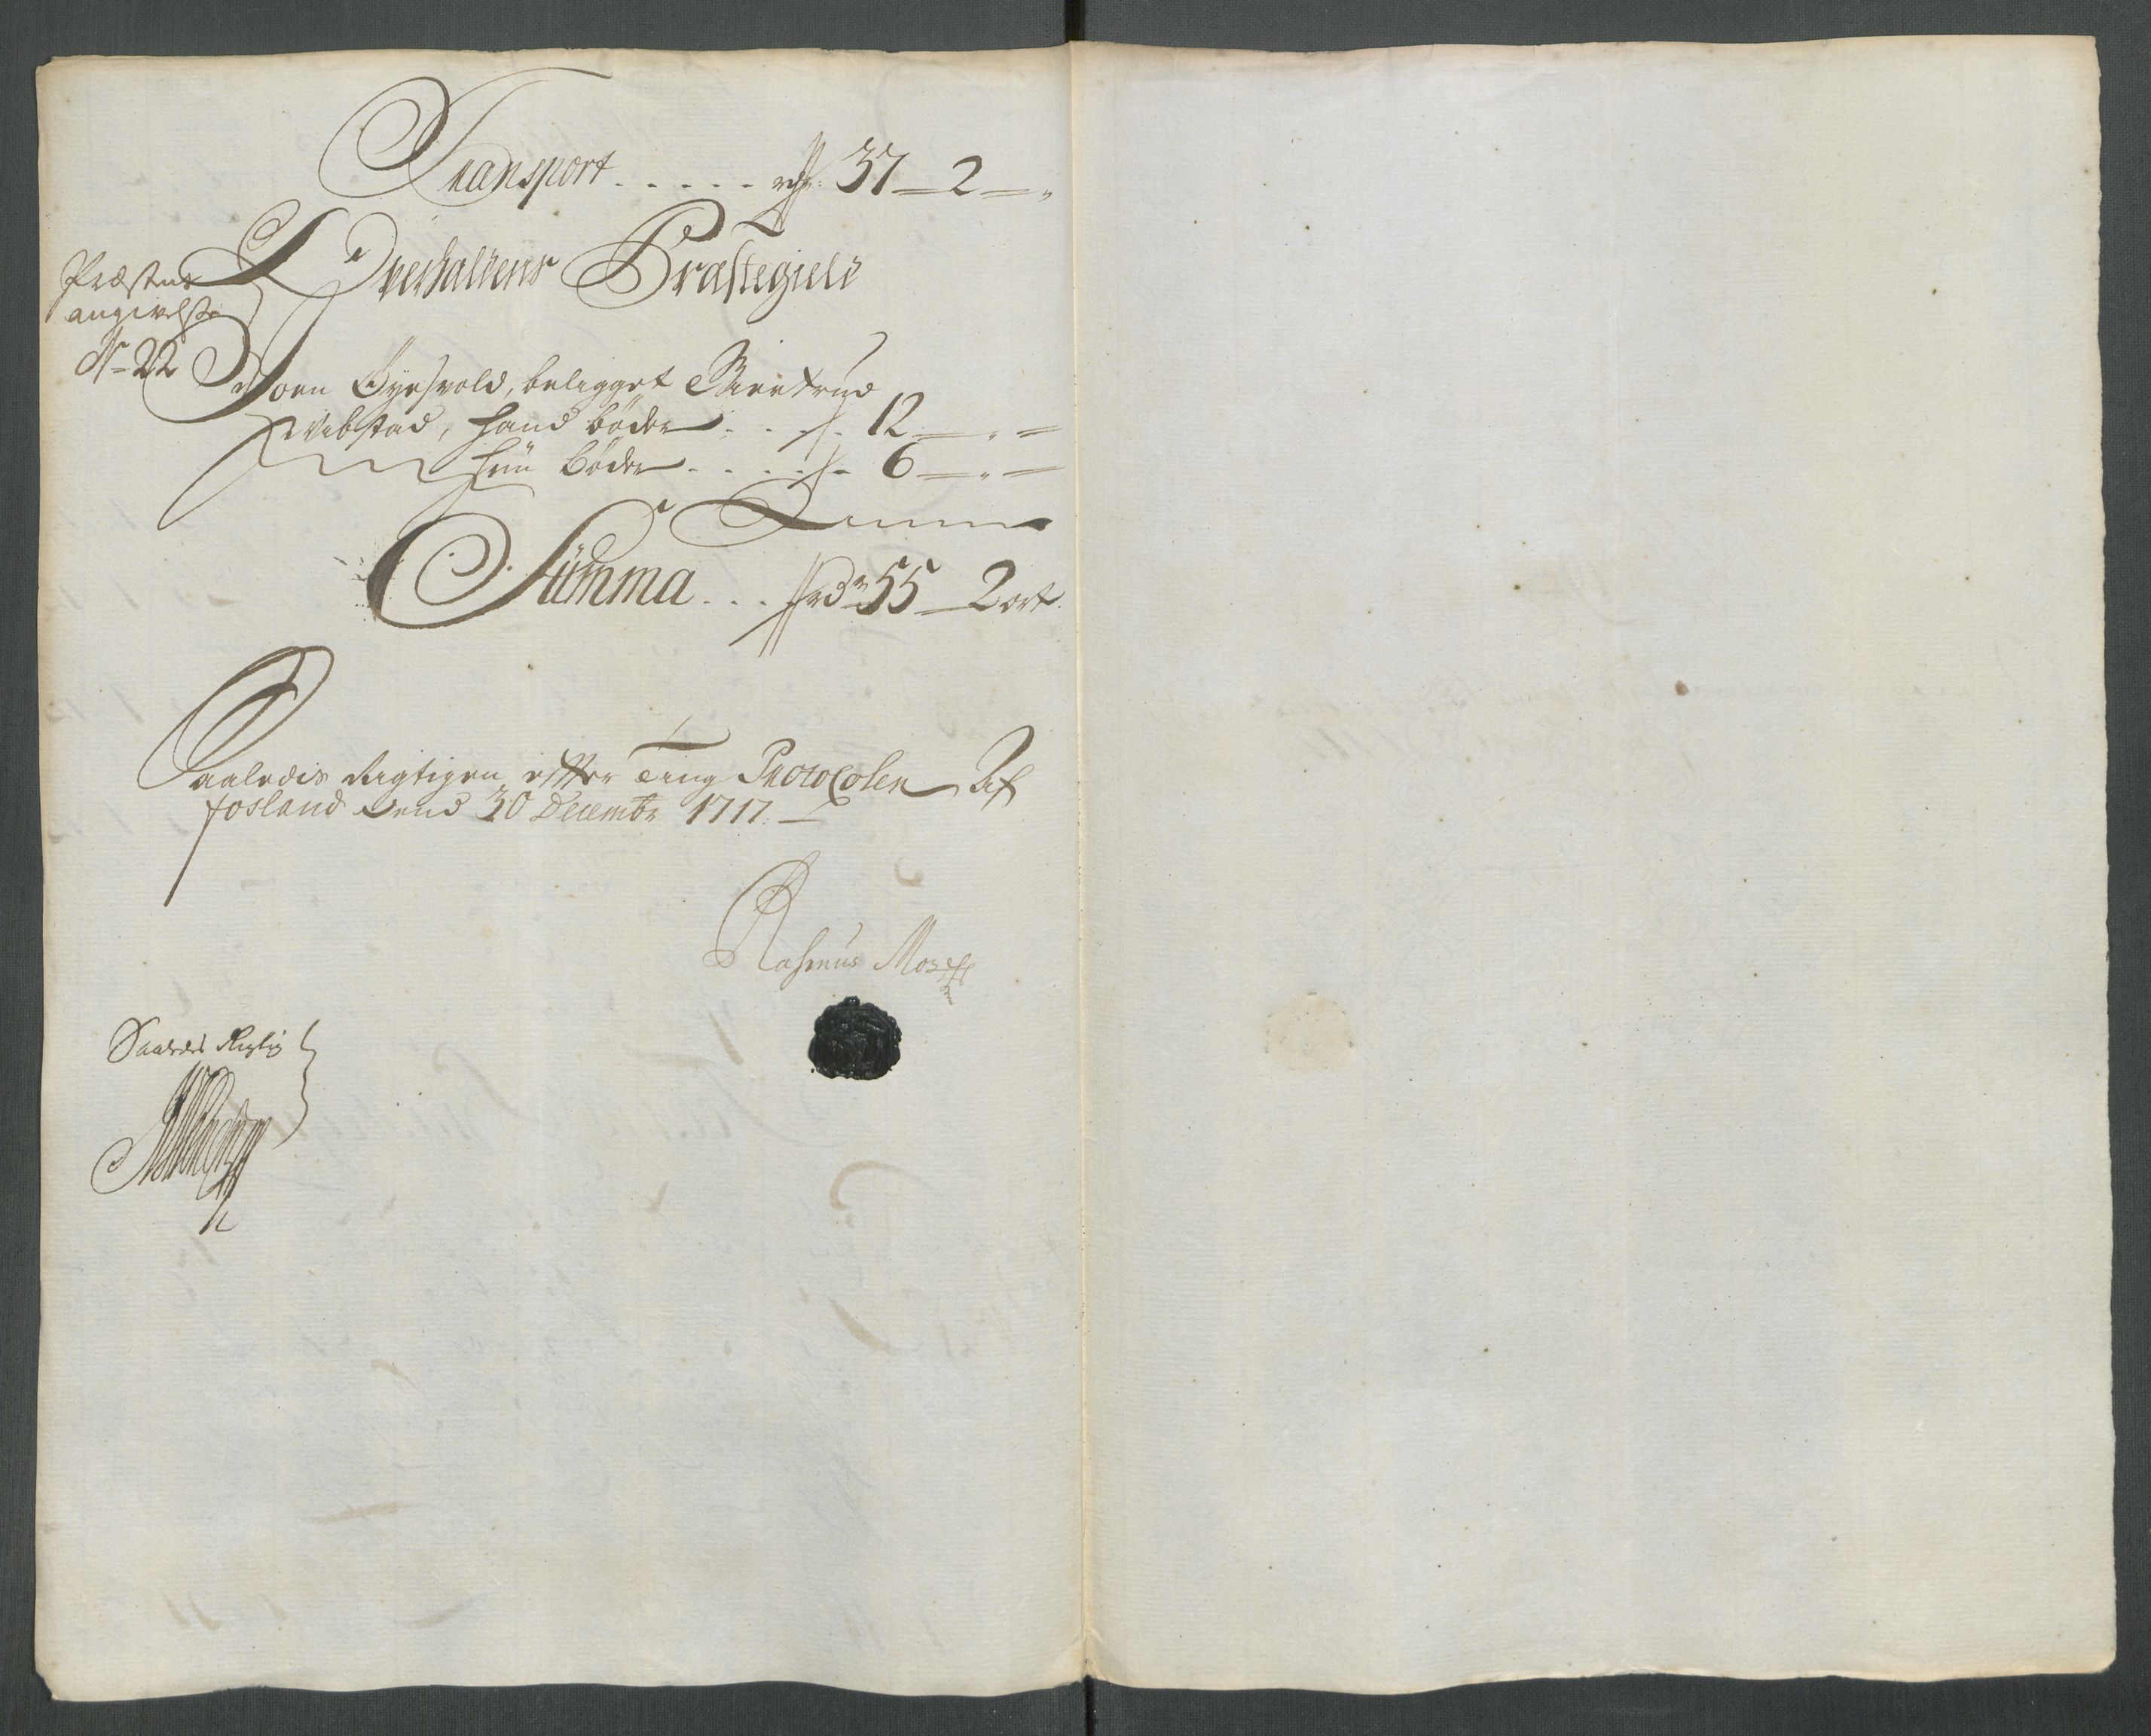 Transport . . . . . rdr. 37 – 2 – „
Overhaldens Præstegield
Præstens
angivelse
No 22
Joen Øyesvold, beligget Giertrud
Vibstad, hand bøder . . . 12 – „ –
hun bøder . . . . 6 – „ –
Summa . . . rdr 55 – 2 ort.
Saaledis Rigtigen efter Ting Protocolen Af
fosland Dend 30 Decembr 1717.
Rasmus
Saaledis Rigtig